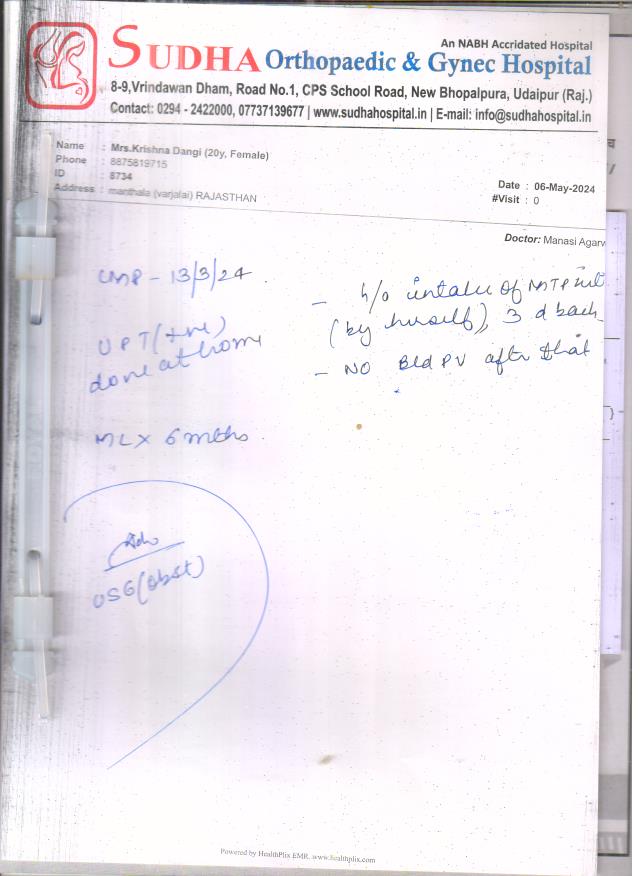 An NABH Accridated Hospital
SUDHA Orthopaedic & Gynec Hospital
8-9,Vrindawan Dham, Road No.1, CPS School Road, New Bhopalpura, Udaipur (Raj.)
Contact: 0294 - 2422000, 07737139677 | www.sudhahospital.in | E-mail: info@sudhahospital.in
Name : Mrs.Krishna Dangi (20y, Female)
Phone : 8875819715
ID : 8734
Address : manthala (varjalai) RAJASTHAN
Date : 06-May-2024
#Visit : 0
Doctor: Manasi Agarw
LMP - 13/3/24
UPT (+ve)
done at home
ML X 6 mths
- h/o intake of MTP
(by herself), 3 d back
- NO Bld PV after that
Adv
USG (Obst)
Powered by HealthPlix EMR. www.healthplix.com